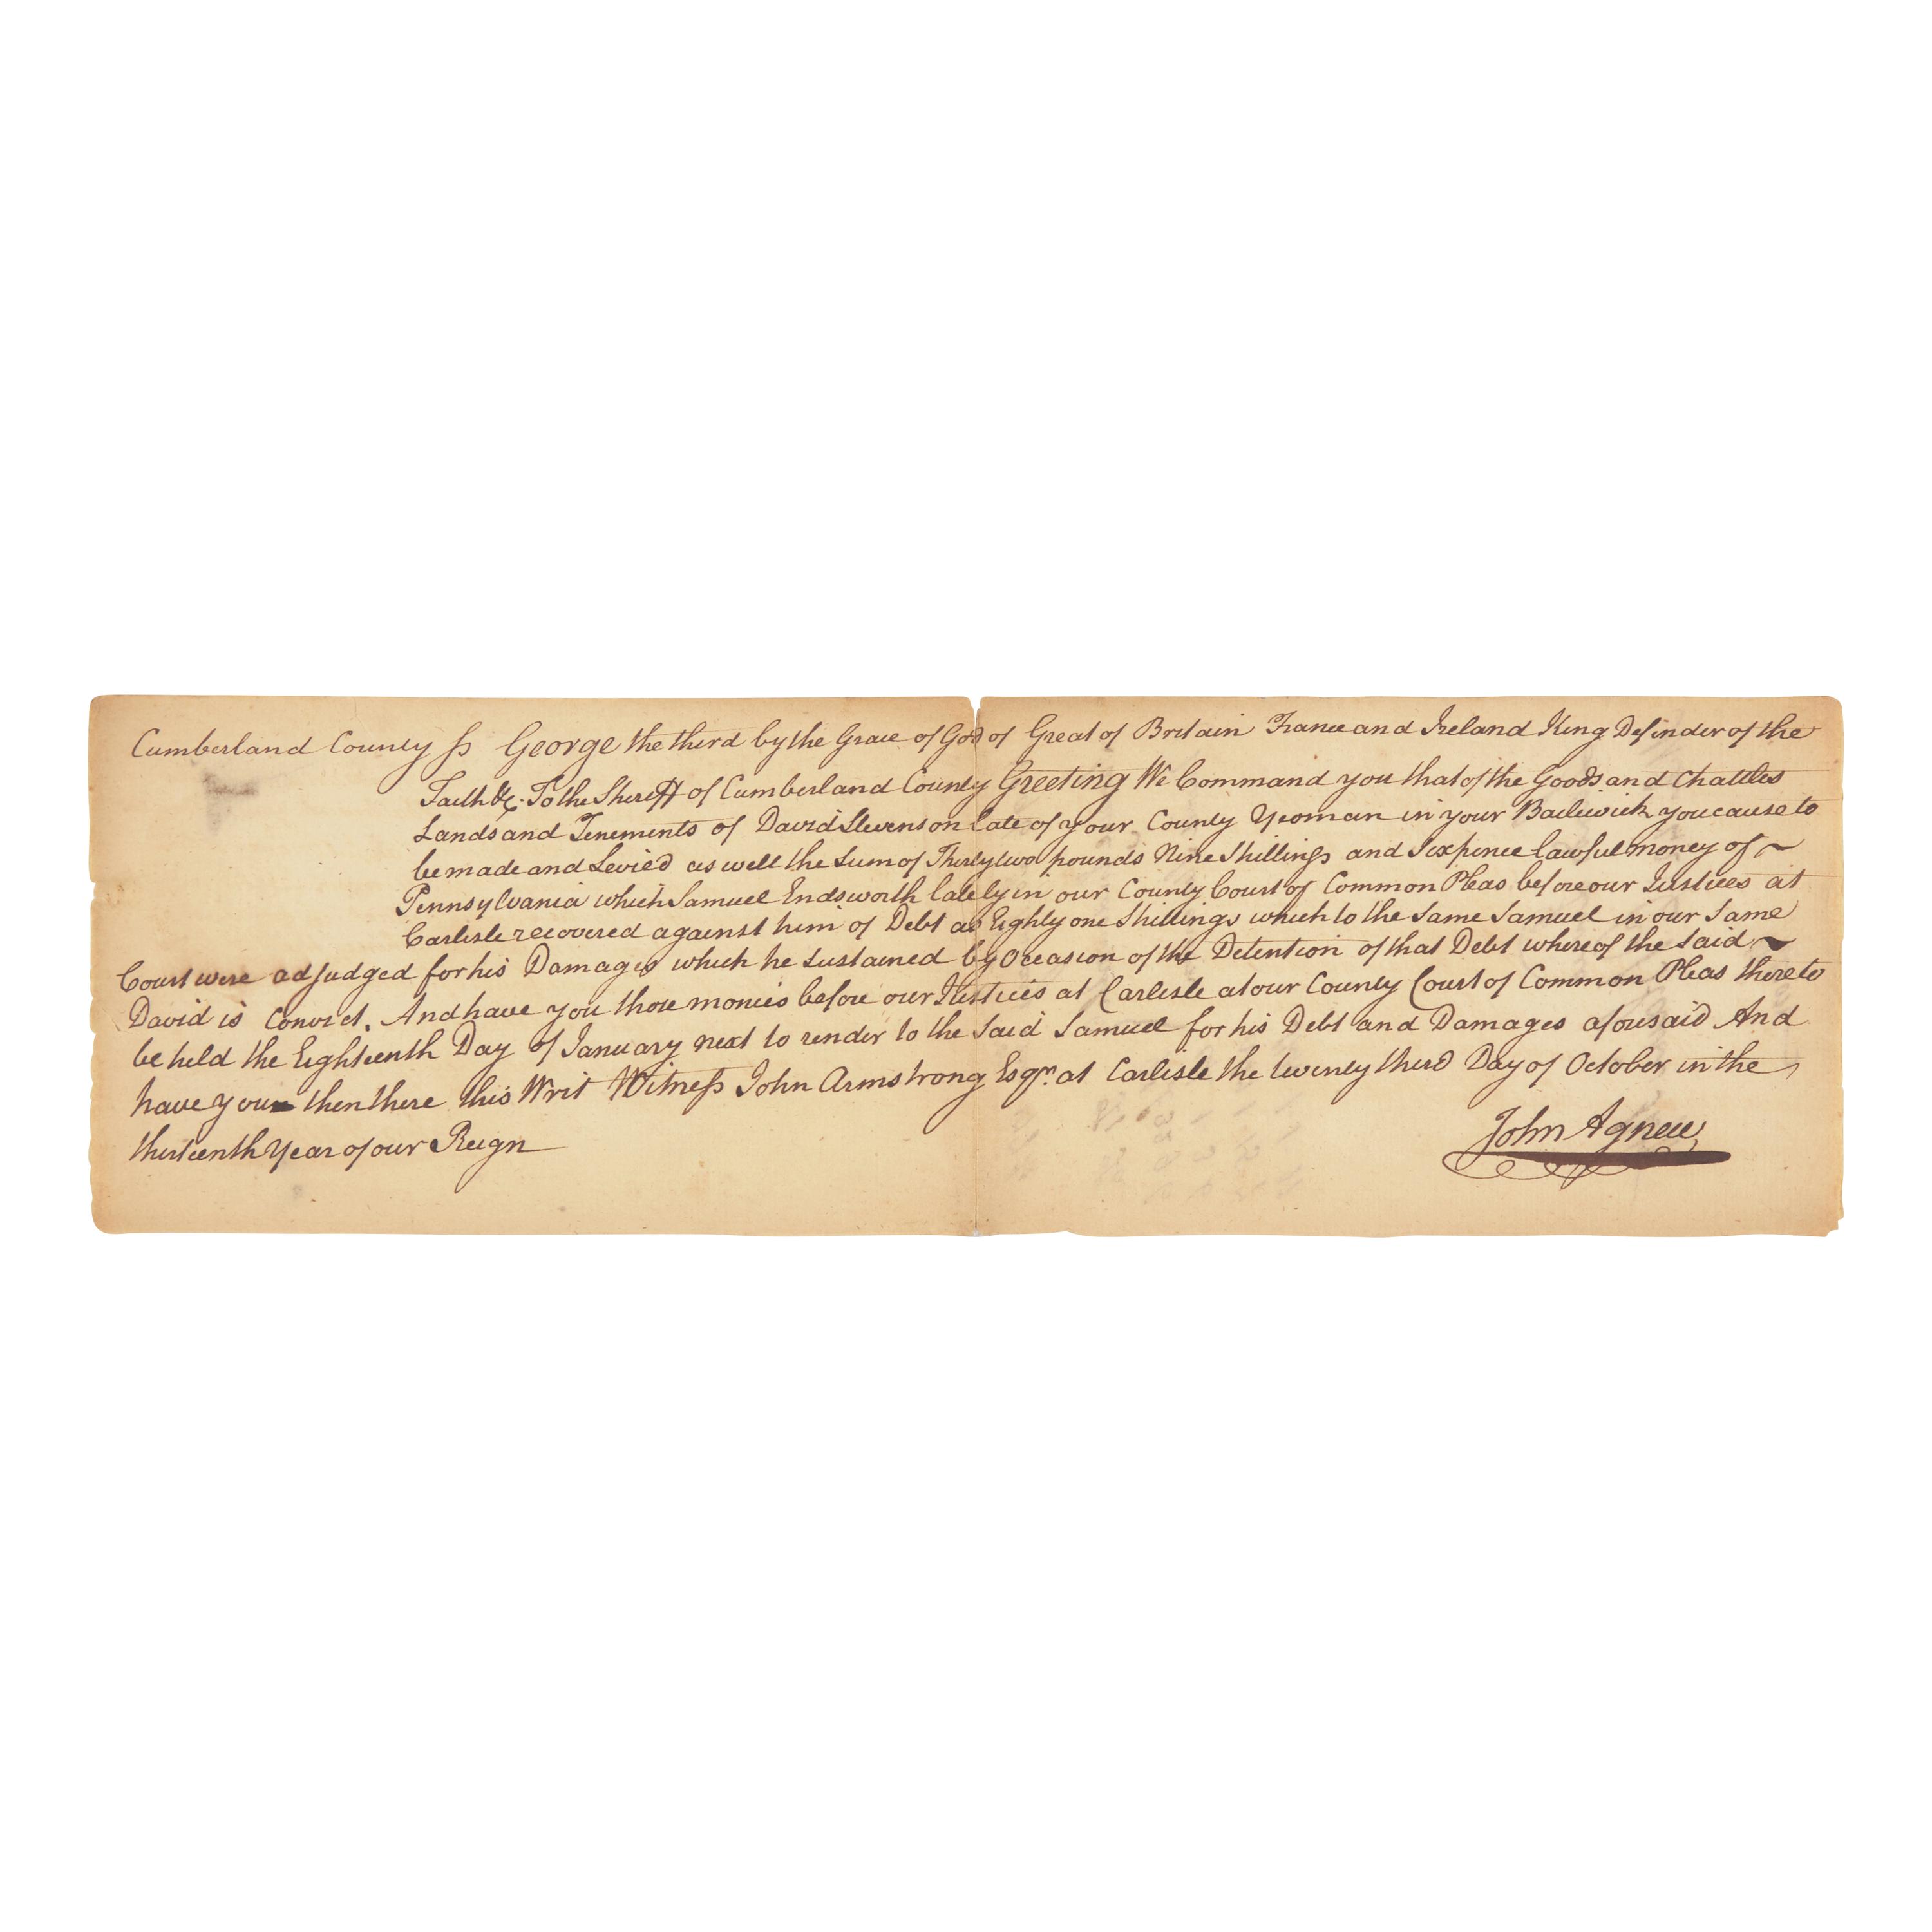 Cumberland County ss George the third by the Grace of God of Great of Britain France and Ireland King Defender of the
Faith &c. To the Sheriff of Cumberland County Greeting We Command you that of the Goods and Chattles
Lands and Tenements of David Stevenson late of your County Yeoman in your Bailiwick you cause to
be made and Levied as well the Sum of Thirty two pounds Nine Shillings and Sixpence lawful money of ~
Pennsylvania which Samuel Endsworth lately in our County Court of Common Pleas before our Justices at
Carlisle recovered against him of Debt as Eighty one Shillings which to the Same Samuel in our Same
Court were adjudged for his Damages which he Sustained by Occasion of the Detention of that Debt whereof the Said ~
David is Convict. And have you those monies before our Justices at Carlisle at our County Court of Common Pleas there to
be held the Eighteenth Day of January next to render to the Said Samuel for his Debt and Damages aforesaid And
have you then there this Writ Witness John Armstrong Esqr. at Carlisle the twenty third Day of October in the
thirteenth Year of our Reign
John Agnew